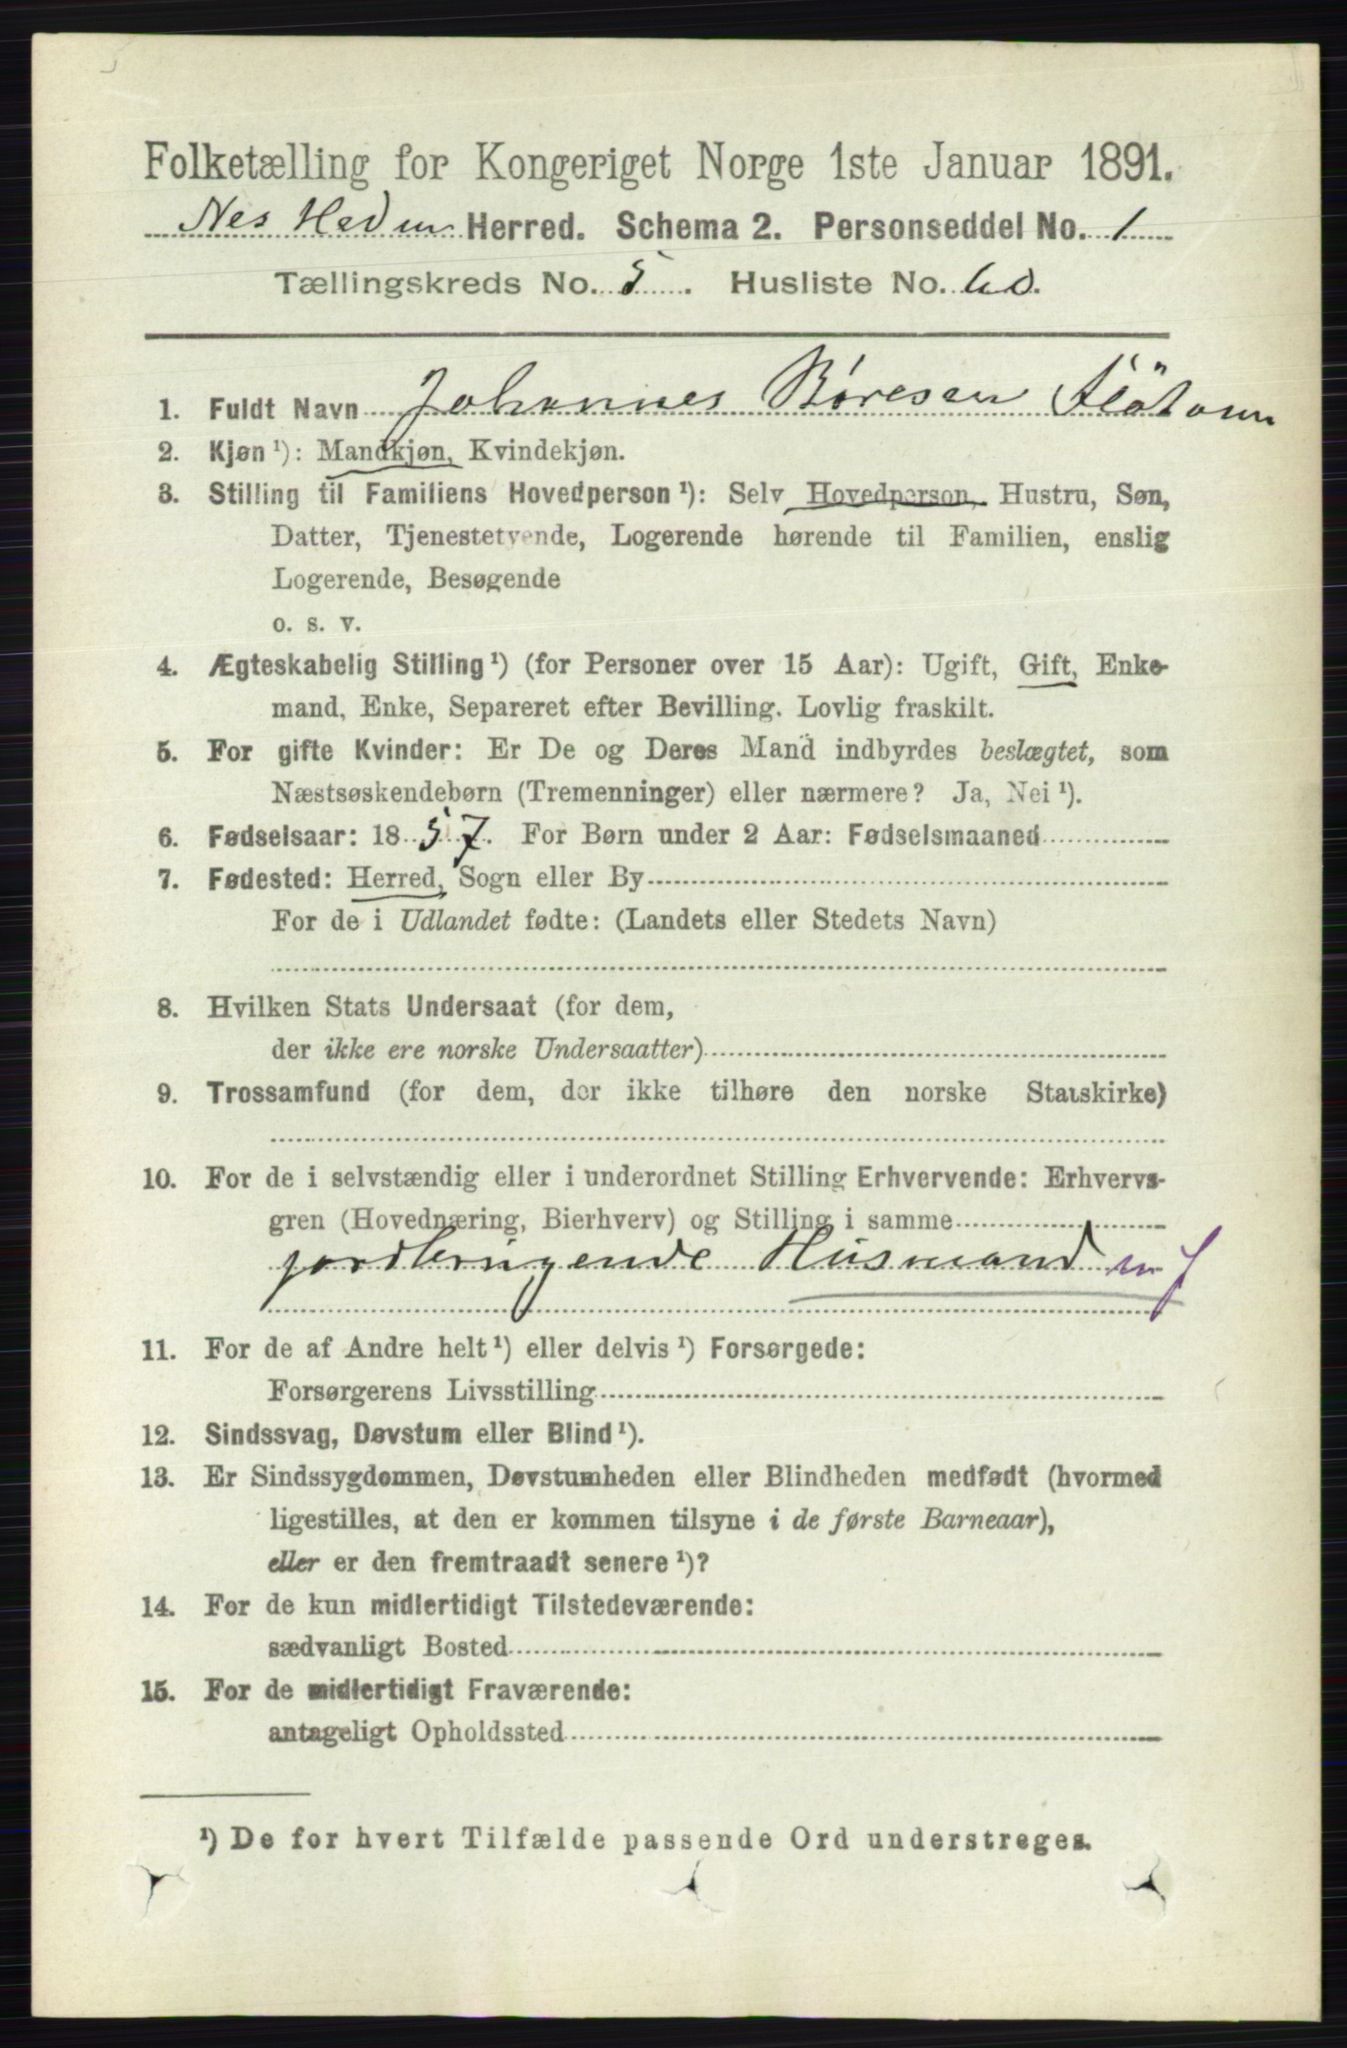 Folketælling for Kongeriget Norge 1ste Januar 1891.
Nes Hedm Herred. Schema 2. Personseddel No. 1
Tællingskreds No. 5. Husliste No. 60.
1. Fuldt Navn Johannes Børesen
2. Kjøn ¹): Mandkjøn, Kvindekjøn.
3. Stilling til Familiens Hovedperson ¹): Selv Hovedperson, Hustru, Søn,
Datter, Tjenestetyende, Logerende hørende til Familien, enslig
Logerende, Besøgende
o. s. v.
4. Ægteskabelig Stilling ¹) (for Personer over 15 Aar): Ugift, Gift, Enke-
mand, Enke, Separeret efter Bevilling. Lovlig fraskilt.
5. For gifte Kvinder: Er De og Deres Mand indbyrdes beslægtet, som
Næstsøskendebørn (Tremenninger) eller nærmere? Ja, Nei ¹).
6. Fødselsaar: 1857. For Børn under 2 Aar: Fødselsmaaned
7. Fødested: Herred, Sogn eller By
For de i Udlandet fødte: (Landets eller Stedets Navn)
8. Hvilken Stats Undersaat (for dem,
der ikke ere norske Undersaatter)
9. Trossamfund (for dem, der ikke tilhøre den norske Statskirke)
10. For de i selvstændig eller i underordnet Stilling Erhvervende: Erhvervs-
gren (Hovednæring, Bierhverv) og Stilling i samme
jordbrugende Husmand m J
11. For de af Andre helt ¹) eller delvis ¹) Forsørgede:
Forsørgerens Livsstilling
12. Sindssvag, Døvstum eller Blind ¹).
13. Er Sindssygdommen, Døvstumheden eller Blindheden medfødt (hvormed
ligestilles, at den er kommen tilsyne i de første Barneaar),
eller er den fremtraadt senere ¹)?
14. For de kun midlertidigt Tilstedeværende:
sædvanligt Bosted
15. For de midlertidigt Fraværende:
antageligt Opholdssted
¹) De for hvert Tilfælde passende Ord understreges.